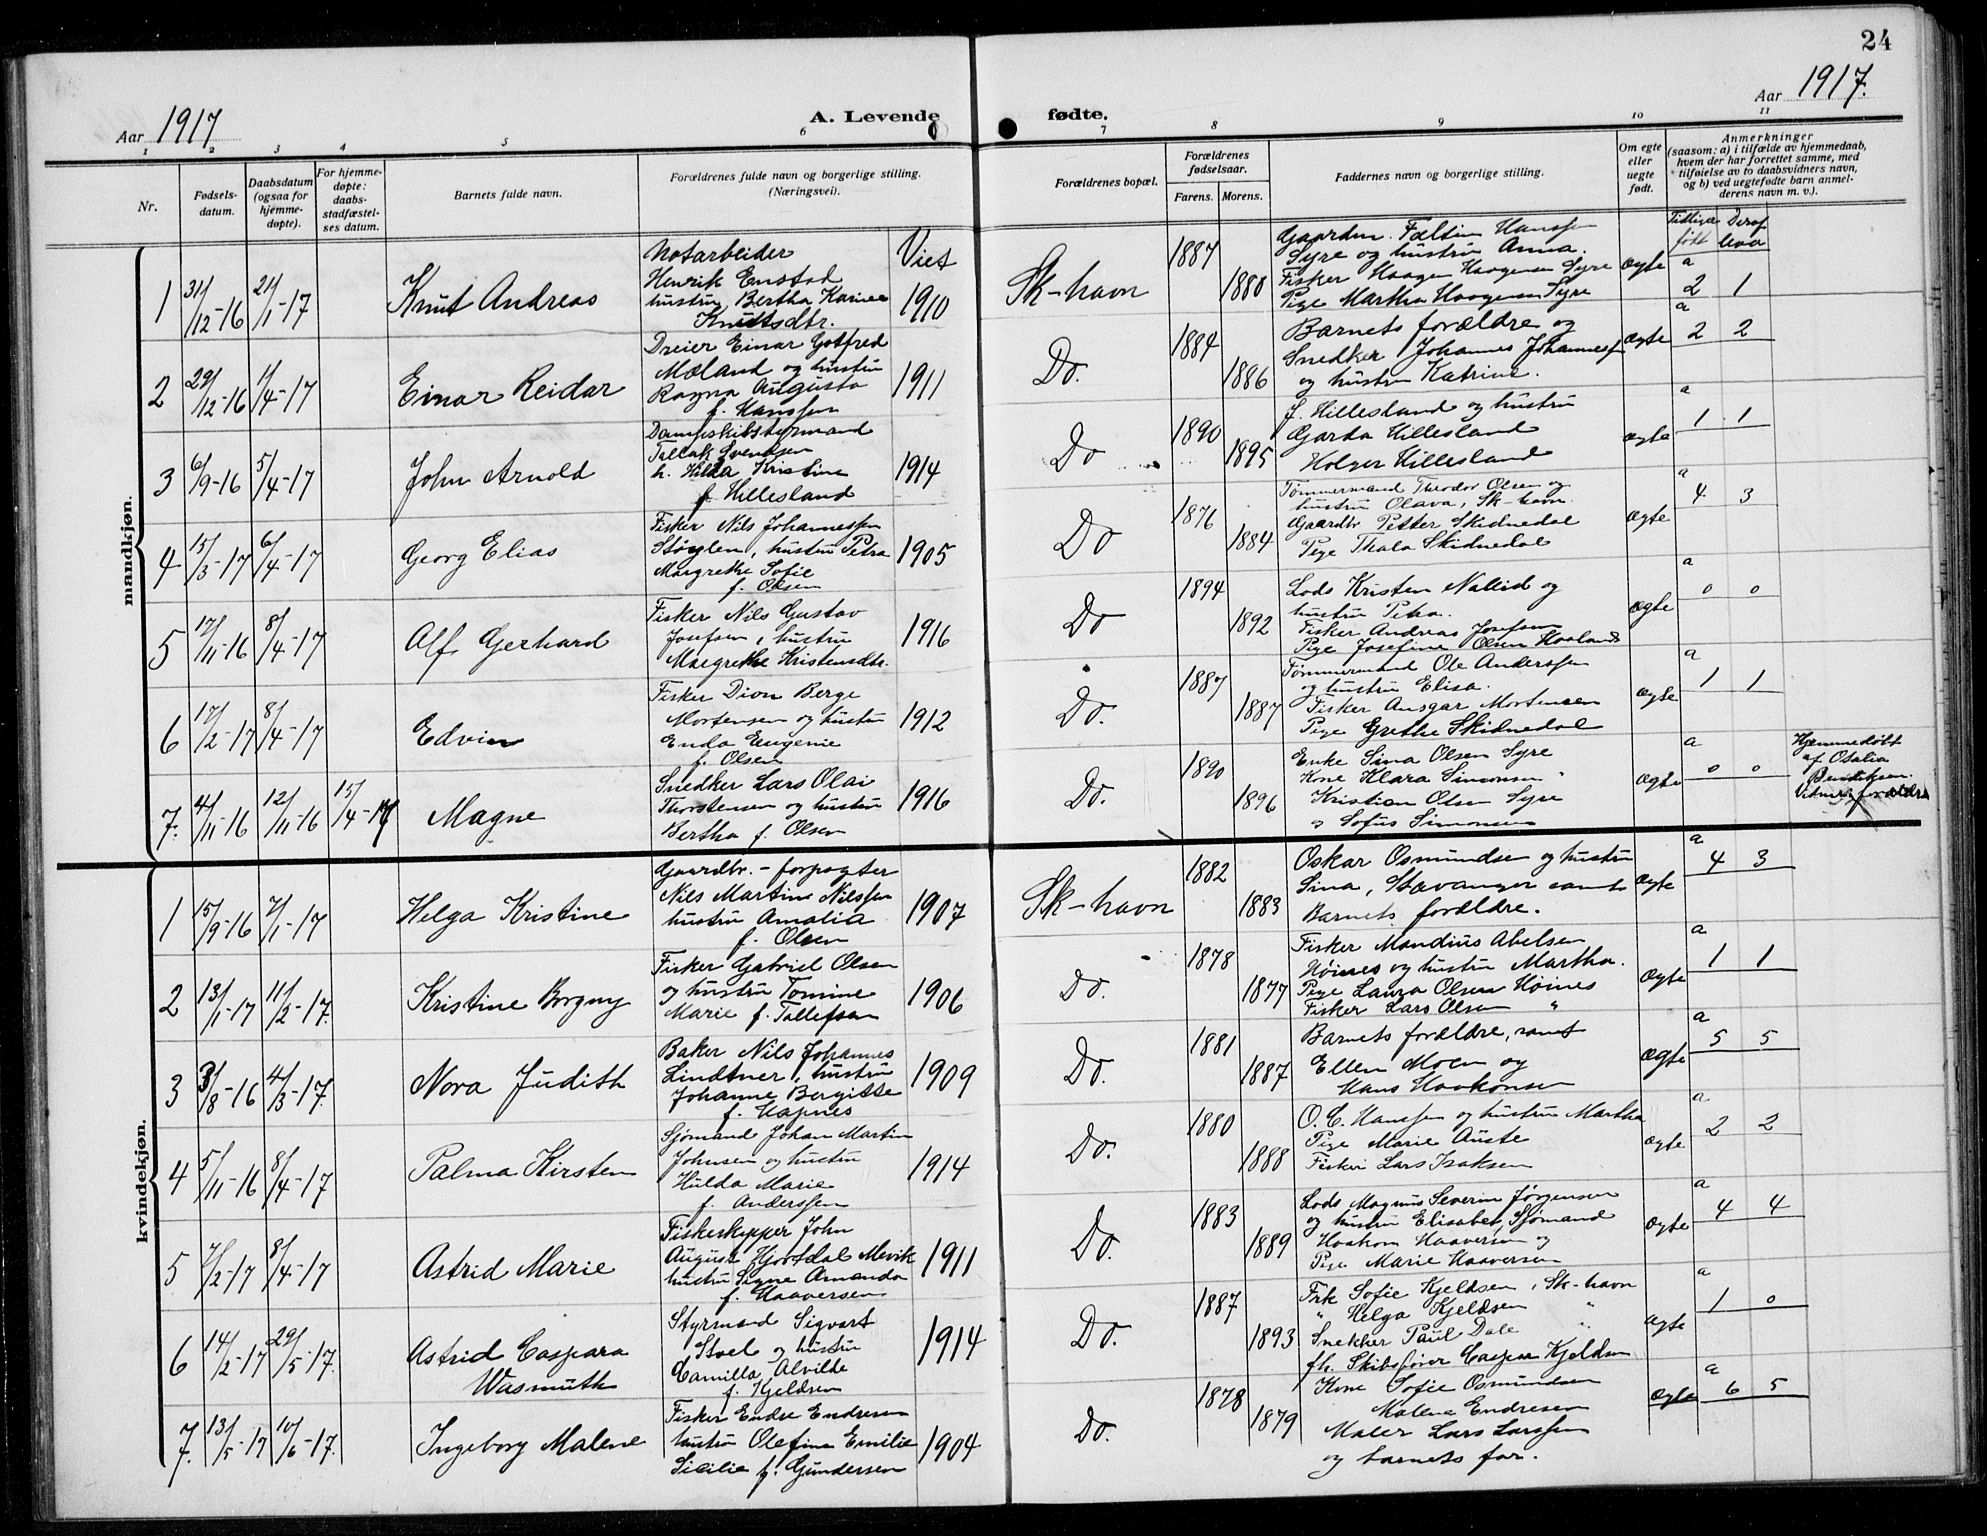 24
Aar 1917
A. Levende fødte.
Aar 1917.
1 2 3 4 5 6 7 8 9 10 11
Nr.
Fødsels-
datum.
Daabsdatum
(ogsaa for
hjemme-
døpte).
For hjemme-
døpte:
daabs-
stadfæstel-
ses datum.
Barnets fulde navn.
Forældrenes fulde navn og borgerlige stilling.
(Næringsvei).
Forældrenes bopæl.
Forældrenes
fødselsaar.
Farens. Morens.
Faddernes navn og borgerlige stilling.
Om egte
eller
uegte
født.
Anmerkninger
(saasom: a) i tilfælde av hjemmedaab,
hvem der har forrettet samme, med
tilføielse av to daabsvidners navn,
og b) ved uegtefødte barn anmel-
derens navn m. v.).
Tidligere Deraf
født leva
mandkjøn.
1 31/12-16 21/1-17 Knut Andreas
Notarbeider
Henrik Enstad
hustru Bertha Karine
Knutsdtr.
Viet
1910
Sk-havn 1887 1880
Gaardm. Faltin Hanssen
Syre og hustru Anna.
Fisker Haagen Haagensen Syre
Pige Martha Haagensen Syre
Ægte a 2 1
2 29/12-16 1/4-17 Einar Reidar
Dreier Einar Gotfred
Mæland og hustru
Ragna Augusta
f. Hanssen
1911
Do. 1884 1886
Barnets forældre og
Snedker Johannes Johannessen
og hustru Katrine.
Ægte a 2 2
3 6/9-16 5/4-17 John Arnold
Dampskibstyrmand
Tallak Svendsen
h. Hilda Kristine
f. Hillesland
1914
Do 1890 1895
f. Hillesland og hustru
Garda Hillesland
Holger Hillesland
Ægte a 1 1
4 15/3-17 6/4-17 Georg Elias
Fisker Nils Johannessen
Størglen, hustru Petra
Margrethe Sofie
f. Olsen
1905
Do 1876 1884
Tømmermand Theodor Olsen og
hustru Olava, Sk-havn.
Gaardbr Petter Skidnedal
Pige Thala Skidnedal
Ægte a 4 3
5 17/11-16 8/4-17 Alf Gerhard
Fisker Nils Gustav
Josefsen, hustru
Margrethe Kristensdtr.
1916
Do 1894 1892
Lods Kristen Nalleid og
hustru Petra.
Fisker Andreas Josefsen
Pige Josefine Olsen Haaland
Ægte a 0 0
6 17/2-17 8/4-17 Edvin
Fisker Dion Berge
Mortensen og hustru
Enda Eugenie
f. Olsen
1912
Do. 1887 1887
Tømmermand Ole Anderssen
og hustru Elisa.
Fisker Ansgar Mortensen
Pige Grethe Skidnedal
Ægte a 1 1
7. 4/11-16 12/11-16 15/4-17 Magne
Snedker Lars Olai
Thorstensen og hustru
Bertha f. Olsen
1916
Do. 1890 1896
Enke Sina Olsen Syre
Kone Klara Simonsen "
Kristian Olsen Syre
og Sofus Simonsen
Ægte a 0 0
Hjemmedøbt
af Otalia
Bendiksen.
Vidner: forældre
kvindekjøn.
1 15/9-16 7/1-17 Helga Kristine
Gaardbr. - forpagter
Nils Martine Nilssen
hustru Amalia
f. Olsen
1907
Sk-havn 1882 1883
Oskar Osmundsen og hustru
Sina, Stavanger samt
Barnets forældre.
Ægte a 4 3
2 13/1-17 11/2-17. Kristine Borgny
Fisker Gabriel Olsen
og hustru Tomine
Marie f. Tallefsen
1906
Do. 1878 1877
Fisker Mandius Abelsen
Høines og hustru Martha.
Pige Laura Olsen Høines
Fisker Lars Olsen "
Ægte a 1 1
3 3/8-16 4/3-17. Nora Judith
Baker Nils Johannes
Lindtner, hustru
Johanne Bergitte
f. Hapnes
1909
Do. 1881 1887
Barnets forældre, samt
Ellen Moen og
Hans Haakonsen
Ægte a 5 5
4 5/11-16 8/4-17 Palma Kirsten
Sjømand Johan Martin
Johnsen og hustru
Hulda Marie
f. Anderssen
1914
Do. 1880 1888
O. C. Hanssen og hustru Martha
Pige Marie Auste
Fisker Lars Isaksen
Ægte a 2 2
5 7/2-17 8/4-17 Astrid Marie
Fiskeskipper John
August Hjortdal Mevik
hustru Signe Amanda
f. Haaversen
1911
Do. 1883 1889
Lods Magnus Severin Jørgensen
og hustru Elisabet, Sjømand
Haakon Haaversen og
Pige Marie Haaversen
Ægte a 4 4
6 14/2-17 29/5-17. Astrid Caspara
Wasmuth
Styrmand Sigvart
Stoel og hustru
Camilla Alvilde
f. Kjeldsen
1914
Do. 1887 1893
Frk Sofie Kjeldsen, Sk-havn
" Helga Kjeldsen "
Snekker Paul Dale "
fh. Skibsfører Caspar Kjeldsen
Ægte a 1 0
7. 13/5-17 10/6-17. Ingeborg Malene
Fisker Endre Endresen
hustru Olefine Emilie
Sicilie f. Gundersen
1904
Do. 1878 1879
Kone Sofie Osmundsen
Malena Endresen
Maler Lars Larssen
og barnets far.
Ægte a 6 5